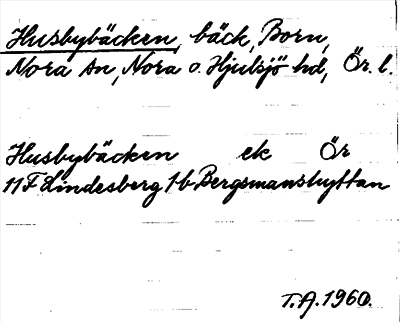 Husbybäcken, bäck, Born,
Nora sn, Nora o. Hjulsjö hd, Ör. l.
Husbybäcken ek Ör
11F Lindesberg 1b Bergsmanshyttan
T.A. 1960.